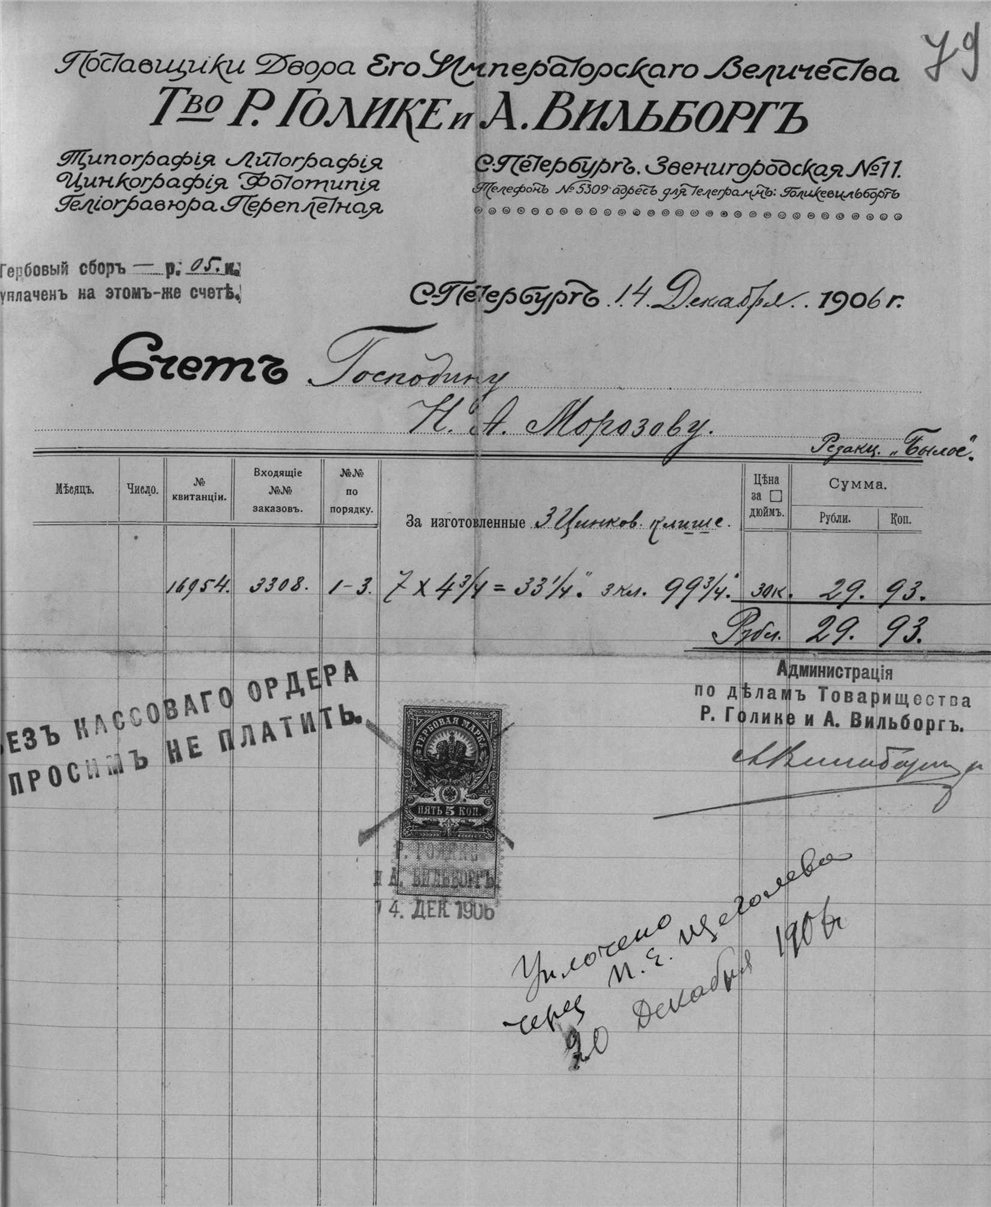 79
Поставщики Двора Его Императорскаго Величества
Тво Р. Голике и А. Вильборгъ
Типографія Литографія
Цинкографія Фототипія
Геліогравюра Переплетная
С.Петербургъ. Звенигородская №11.
Телефонъ №5309 адресъ для телеграммъ: Голикевильборгъ
Гербовый сборъ — р. 05 к.
уплаченъ на этомъ-же счетѣ.
С.Петербургъ 14 Декабря 1906 г.
Счетъ Господину
Н. А. Морозову.
Редакц. „Былое".
Мѣсяцъ. Число. № квитанціи. Входящіе №№ заказовъ. №№ по порядку. За изготовленные 3 Цинков. клише. Цѣна за □ дюймъ. Сумма. Рубли. Коп.
16954. 3308. 1-3. 7 x 4 3/4 = 33 1/4" 3 кл. 99 3/4" 30к. 29. 93.
Рубл. 29. 93.
Администрація
по дѣламъ Товарищества
Р. Голике и А. Вильборгъ.
А Вильборгъ
БЕЗЪ КАССОВАГО ОРДЕРА
ПРОСИМЪ НЕ ПЛАТИТЬ.
ГЕРБОВАЯ МАРКА
ПЯТЬ 5 КОП.
Р. ГОЛИКЕ
и А. ВИЛЬБОРГЪ.
14. ДЕК 1906
Уплочено
через П. Е. Щеголева
20 Декабря 1906 г